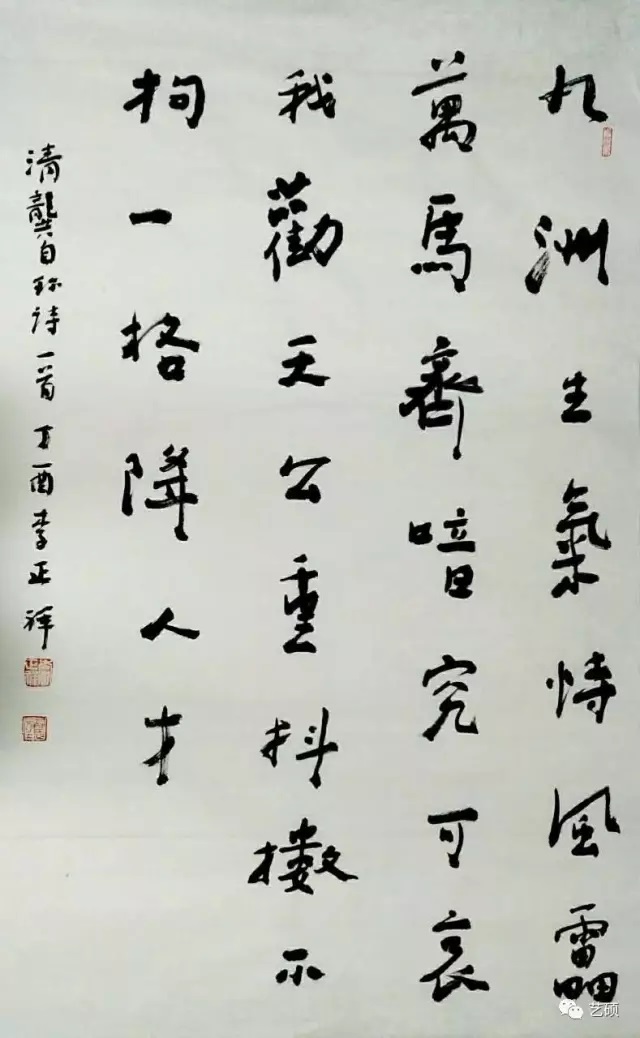 九洲生氣恃風靁
萬馬齊喑究可哀
我勸天公重抖擻不
拘一格降人才
清龔自珍诗一首丁酉李正祥
艺硕